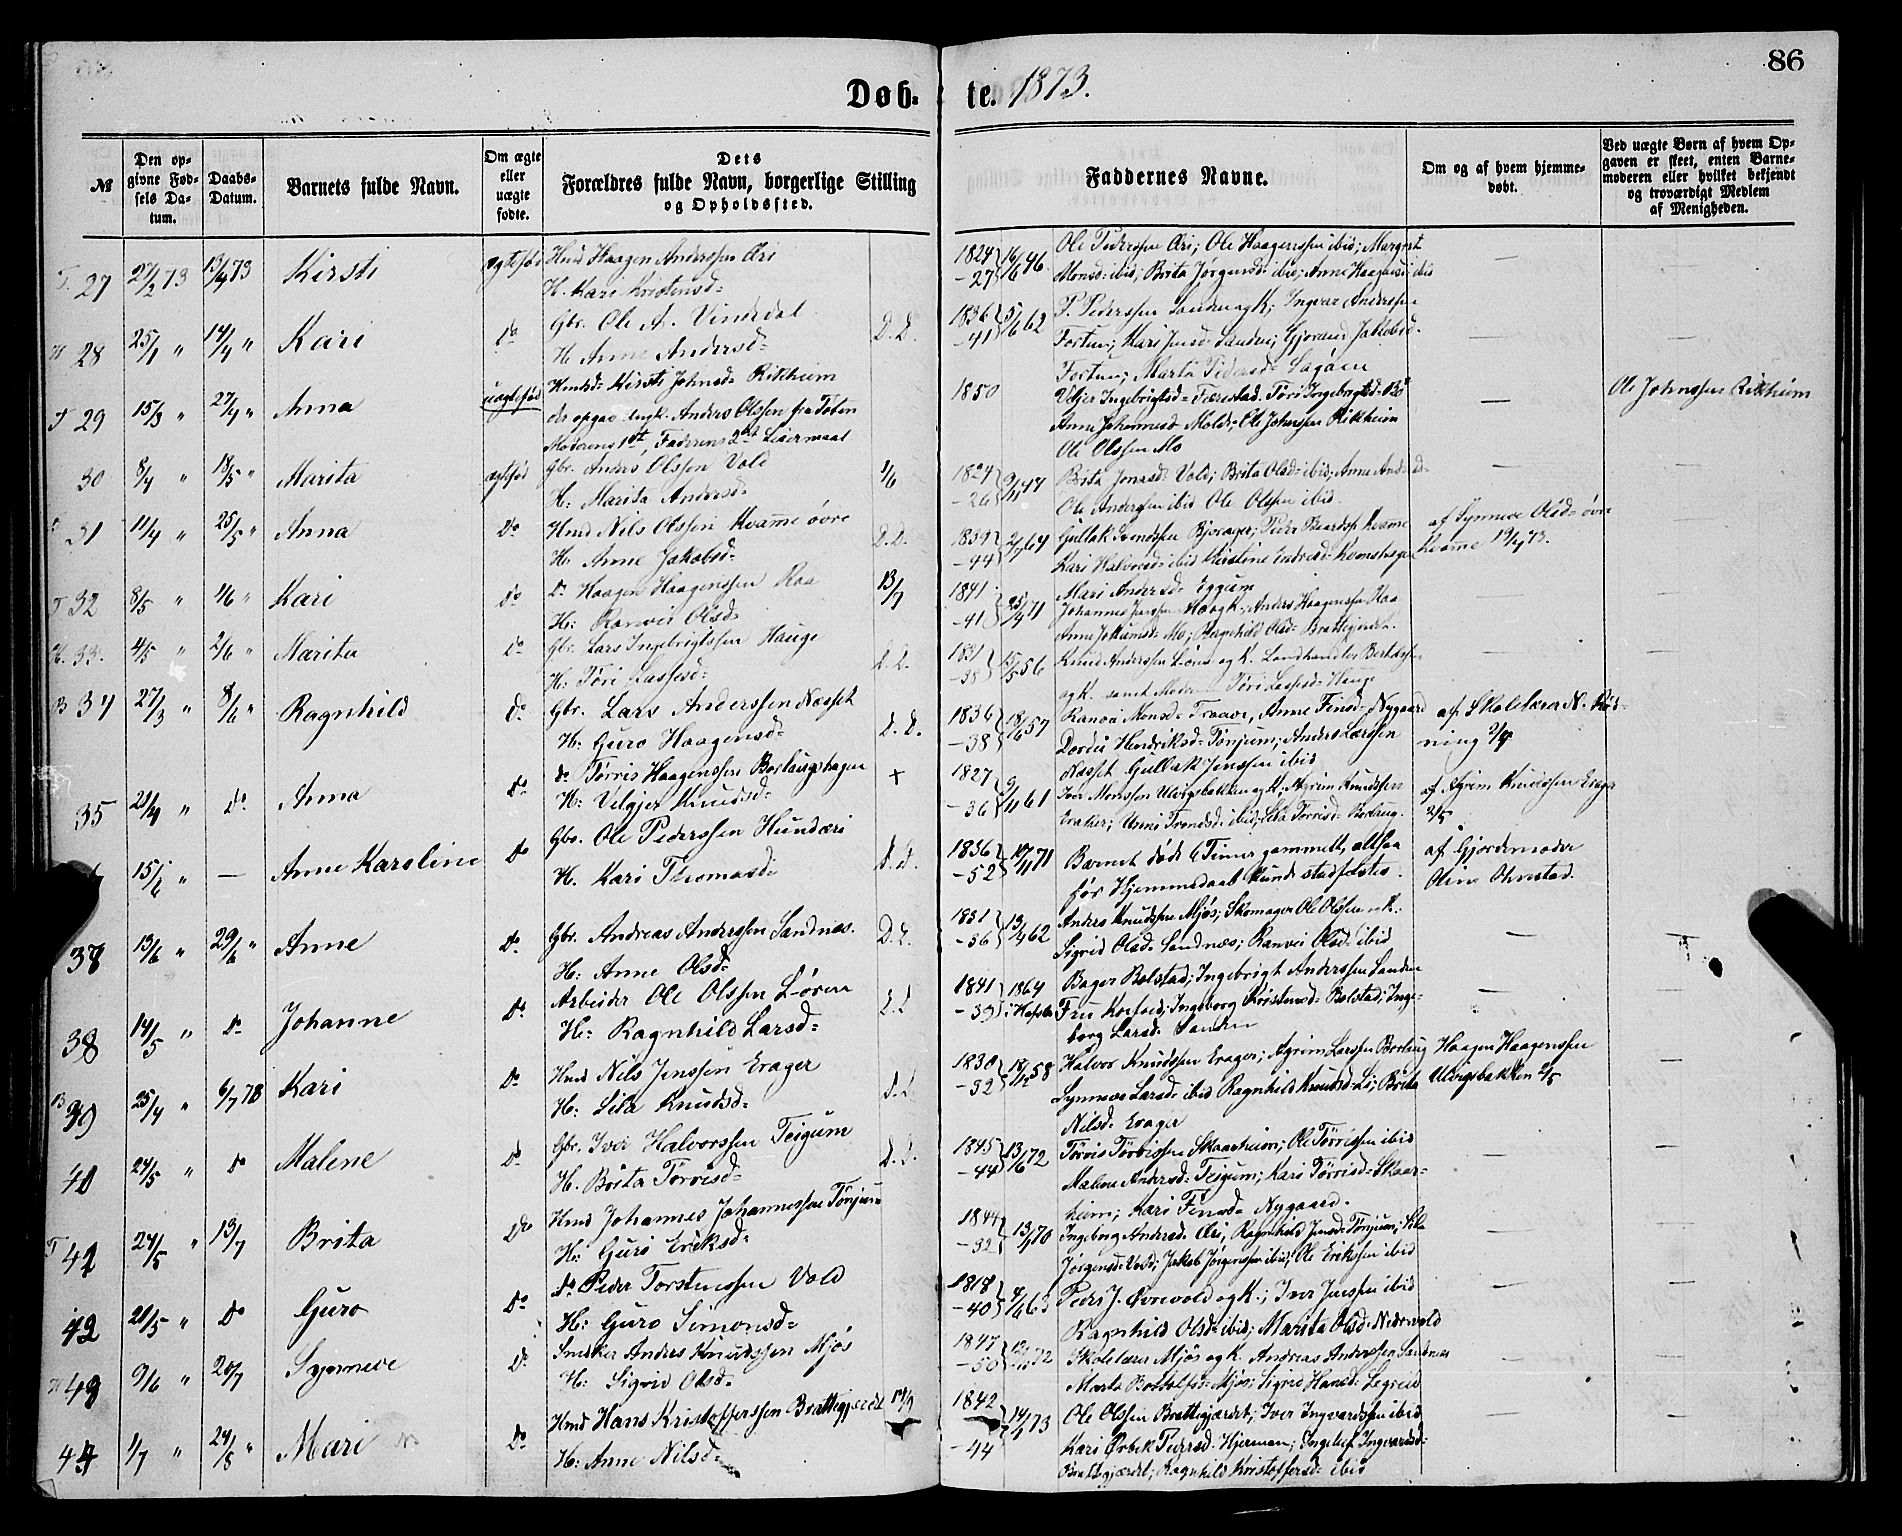 86
Døb-
te. 1873.
№
Den op-
givne Fød-
sels Da-
tum.
Daabs-
Datum.
Barnets fulde Navn.
Om ægte
eller
uægte
fødte.
Dets
Forældres fulde Navn, borgerlige Stilling
og Opholdssted.
Faddernes Navne.
Om og af hvem hjemme-
døbt.
Ved uægte Børn af hvem Op-
gaven er skeet, enten Barne-
moderen eller hvilket bekjendt
og troværdigt Medlem
af Menigheden.
T. 27 27/2 73 13/4 73 Kirsti ægtefød Hmd Haagen Anderssen Æri
H. Kari Kristensd=
1824 16/6 46
-27
Ole Pederssen Æri; Ole Haagenssen ibid; Margret
Monsd= ibid; Brita Jørgensd= ibid; Anne Haagensd= ibid
28 25/1 " 14/4 " Kari Do Gbr. Ole A. Vindedal D.D.
H. Anne Andersd=
1836 5/6 62
-41
P. Pederssen Landen og K; Ingvar Anderssen
Fortun; Kari Jensd= Landen; Gjørand Jakobsd=
Fortun; Marta Pedersd=
T 29 15/3 " 27/4 " Anna uægtefød Hmdsd= Kirsti Johnsd= Rikheim
der opgav Ungk. Anders Olssen fra Føben
Moderens 1st, Faderens 2det Leiermaal
1850
Velgjer Ingebrigtsd= Færestad. Tori Ingebrigtsd=
Anne Johannesd= Molde; Ole Johnssen Rikheim
Ole Olssen Mo
Ole Johnssen Rikheim
30 8/4 " 18/5 " Marita ægtefød Gbr. Anders Olssen Vold 1/6
H: Marita Andersd=
1824 9/11 47
-26
Brita Jonasd= Vold; Brita Olsd= ibid; Anna Andersd=
Ole Anderssen ibid Ole Olssen ibid
31 11/4 " 25/5 " Anna Do Hmd Nils Olssen Kvamme øvre D.D.
H. Anne Jakobsd=
1839 2/7 64
-44
Gullak Svendssen Bjørager; Peder Kvame
Kari Halvorsd= ibid Kristine Endresd=
af Synneve Olsd= øvre
Kvamme 19/4 73.
T 32 8/5 " 1/6 " Kari Do Do Haagen Haagenssen Raa 13/7
H: Ranvei Olsd=
1841 25/4 71
-41
Mari Andersd= Eggum
Johannes Jenssen Mo og K; Anders Haagenssen Raa
Anne Jokumsd= Mo; Ragnhild Olsd= Brattegjerdet.
H. 33. 4/5 " 2/6 " Marita Do Gbr. Lars Ingebrigtssen Hauge D.D.
H: Tori Lassesd=
1831 15/5 56
-38
Knud Anderssen Løren og K. Landhandler
og K. samt Moder Tori Lassesd= Hauge
B 34 27/3 " 8/6 " Ragnhild Do Gbr. Lars Anderssen Næsset D.D.
H: Guro Haagensd=
1836 18/6 57
-38
Ranvei Monsd= Traave, Anne Finsd= Nygaard
Dordei Hendriksd= Tønjum; Anders Larssen
Næsset Gullak Jenssen ibid
af Skolelærer N. Røs-
ning 2/4
35 21/4 " Do Anna Do Do Tørris Haagenssen Borlaughagen +
H: Velgjer Knudsd=
1827 9/11 61
-36
Iver Monssen Ulvigsbakken og K; Agrim Knudssen
Eraker; Unni Trondsd= ibid; Sila Tørrisd= Borlaug.
af Agrim Knudssen Erager
2/5
15/6 " — Anne Karoline Do Gbr. Ole Pederssen Hundæri D.D.
H. Kari Thomasd=
1836 17/4 71
-52
Barnet døde 6 Timer gammelt, altsaa
før Hjemmedaab kunde stadfæstes.
af Gjordemoder
Oline Ohnstad.
37 13/6 " 29/6 " Anne Do Gbr. Andreas Anderssen Sandnæs. D.D.
H: Anne Olsd=
1831 13/4 62
-36
Anders Knudssen Mjøs; Skomager Ole Olssen og K:
Sigrid Olsd= Sandnæs; Ranvei Olsd= ibid
38 14/5 " Do Johanne Do Arbeider Ole Olssen Løren D.D
H: Ragnhild Larsd=
1841 1864
-39 i Hafslo
Bager Bolstad; Ingebrigt Anderssen Landen
Fru Korfoed; Ingeborg Kristensd= Bolstad; Inge-
borg Larsd= Landen
B 39 25/4 " 6/7 73 Kari Do Hmd Nils Jenssen Erager D.D.
H: Sila Knudsd=
1830 18/4 58
-32
Halvor Knudssen Erager; Agrim Larssen Borlaug
Synneve Larsd= ibid Ragnhild Knudsd= Li; Brita
Nilsd= Erager
Haagen Haagenssen
Ulvigsbakken 2/5
40 24/5 " Do Malene Do Gbr. Iver Halvorssen Teigum D.D.
H. Brita Tørrisd=
1845 13/6 72
-44
Tørris Tørrissen Skaarheim; Ole Tørrissen ibid
Malene Andersd= Teigum; Kari Tørrisd= Skaar-
heim; Kari Finsd= Nygaard.
T 41 24/5 " 13/7 Brita Do Hmd Johannes Johannessen Tønjum
H: Guri Eriksd=
1844 13/7 70
-32
Ingeborg Andersd= Æri, Ragnhild Jensd= Tønjum; Sila
Jørgensd= Vold; Jakob Jørgenssen ibid; Ole Erikssen ibid
42 21/5 " Do Guro Do Do Peder Torstenssen Vold
H: Guro Simonsd=
1818 4/6 63
-40
Peder J. Øvrevold og K.; Iver Jenssen ibid
Ragnhild Olsd= ibid; Marita Olsd= Nedrevold
H 43 9/6 " 20/7 Synneve Do Snedker Anders Knudssen Mjøs
H: Sigrid Olsd=
1847 72
-50
Skolelærer Mjøs og K. Andreas Anderssen Sandnæs
Marta Botolfsd= Mjøs; Sigrid Hansd= Legreid
44 1/7 " 24/8 " Mari Do Hmd Hans Kristofferssen Brattegjerdet 14/9
H: Anne Nilsd=
1842 14/4 73
-44
Ole Olssen Brattegjærdet; Iver Ingvardssen ibid
Kari Ørbek Pedersd= Hjerman; Ingelief Ingvardsd=
Brattegjærdet; Ragnhild Kristoffersd= ibid